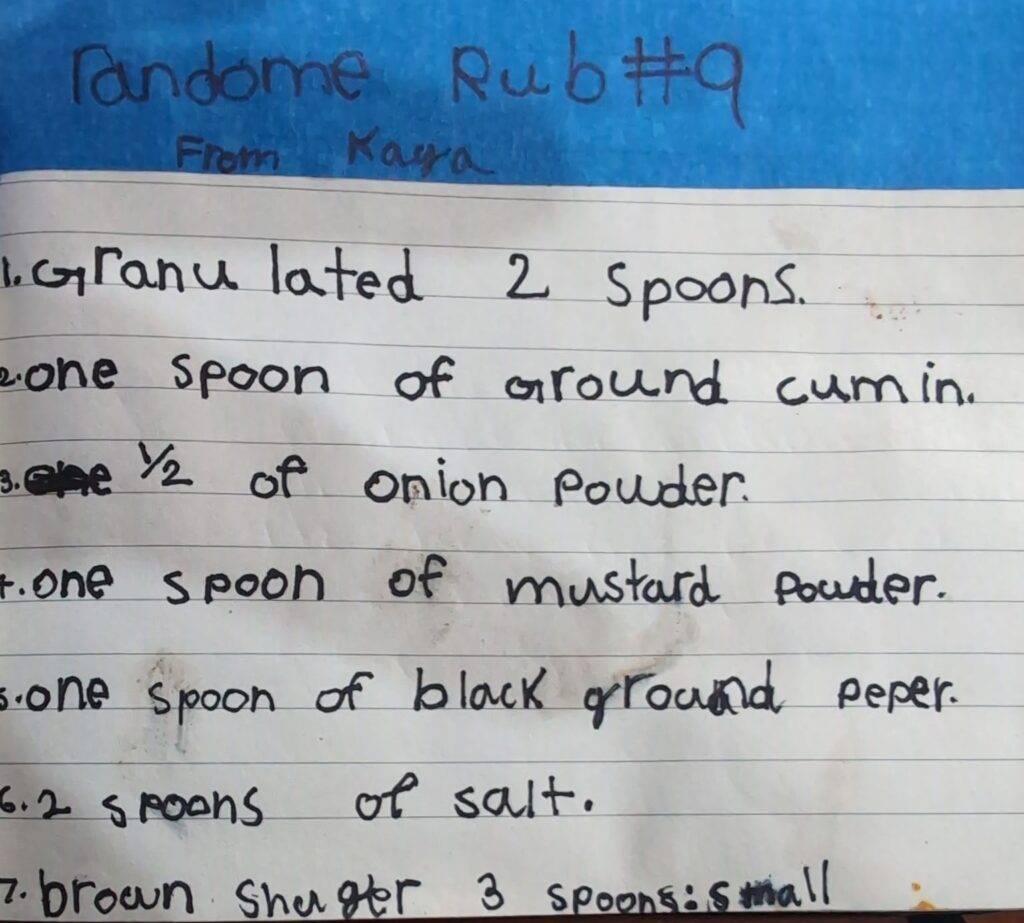 randome Rub #9
From Kaya
1. Granulated 2 spoons.
2. one spoon of Ground cumin.
3. 1/2 of onion powder.
4. one spoon of mustard powder.
5. one spoon of black ground peper.
6. 2 spoons of salt.
7. brown shuger 3 spoons: small